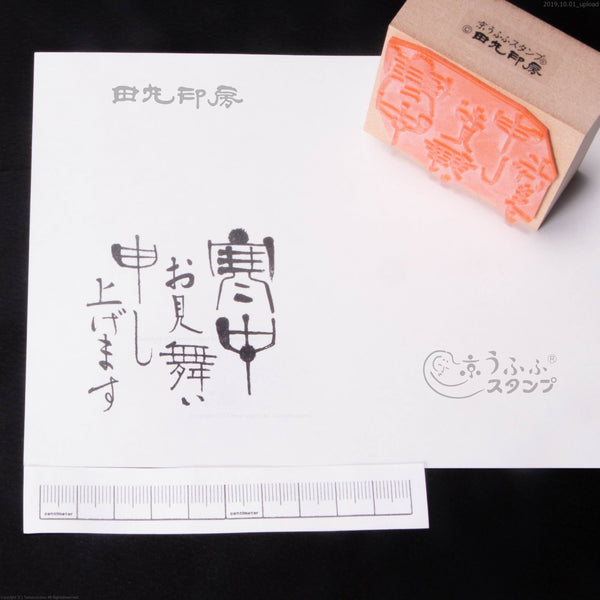 2019.10.01_upload
京うふふスタンプ®
© 田丸印房
田丸印房
寒中
お見舞い
申し
上げます
京うふふ®
スタンプ
centimeter
centimeter